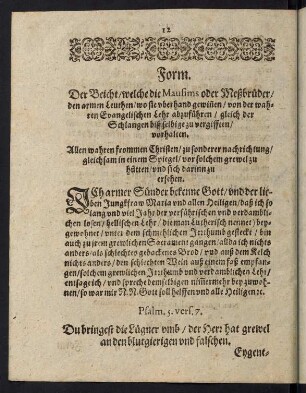 12
Form.
Der Beicht/welche die Mausims oder Meßbrüder/
den armen Leuthen/wo sie vberhand gewiñen/ von der wah-
ren Evangelischen Lehr abzuführen / gleich der
Schlangen biß selbige zu vergifften/
vorhalten.
Allen wahren frommen Christen/ zu sonderer nachrichtung/
gleichsam in einem Spiegel/ vor solchem grewel zu
hütten/ vnd sich darinn zu
ersehen.
ICh armer Sünder bekenne Gott/ vnd der lie-
ben Jungkfraw Maria vnd allen Heiligen/ daß ich so
lang vnd viel Jahr der verführischen vnd verdamb-
lichen losen/ hellischen Lehr/ die man Lutherisch nennet/ bey-
gewohnet/ vnter dem schmlichem Irrthumb gesteckt/ bin
auch zu jrem grewlichen Sacrament gangen/ allda ich nichts
anders/ als schlechtes gebackenes Brod/ vnd auß dem Kelch
nichts anders/ den schlechten Wein auß einem faß empfan-
gen/ solchem grewlichen Irrthumb vnd verdamblichen Lehr/
entsage ich/ vnd sprich demselbigen nimmermehr bey zuwoh-
nen/ so war mir N.N. Gott soll helffen vnd alle Heiligen ꝛc.
Psalm. 5. vers. 7.
Du bringest die Lügner vmb / der Herr hat grewel
an den blutgierigen vnd falschen.
Eygent-